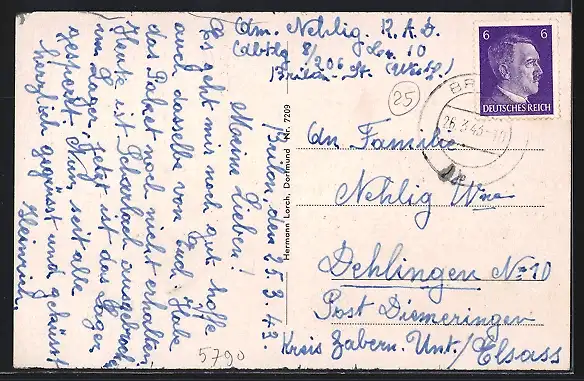 Abm. Nehlig. R.A.D.
Abtlg 8/206 Lw. 10
Brilon-St. (Westf.)
6 6
DEUTSCHES REICH
25
26.3.43
An Familie
Nehlig Wwe
Dehlingen No 10
Post Diemeringen
Kreis Zabern. Unt/Elsass
Hermann Lorch, Dortmund Nr. 7209
Brilon, den 25.3.43
Meine Lieben!
Es geht mir noch gut hoffe
auch dasselbe von Euch. Habe
das Paket noch nicht erhalten.
Heute ist Scharlach ausgebrochen
im Lager, jetzt ist das Lager
gesperrt. Nun seit alle
herzlich gegrüsst und geküsst
Heinrich.
5790